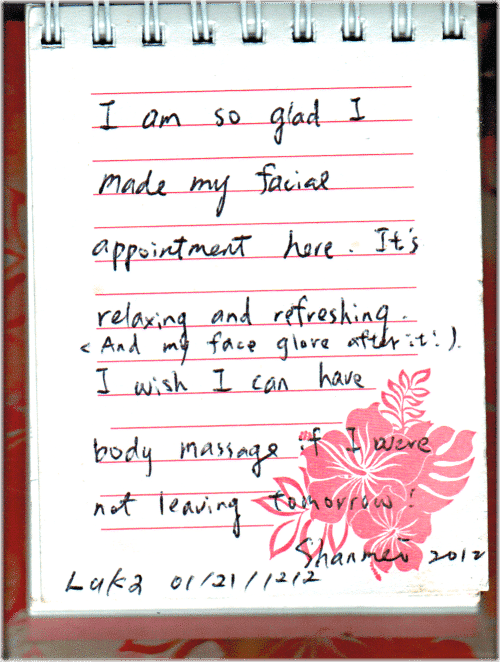 I am so glad I
made my facial
appointment here. It's
relaxing and refreshing.
(And my face glove after it!).
I wish I can have
body massage if I were
not leaving tomorrow!
Shanmei 2012
Luka 01/21/1212